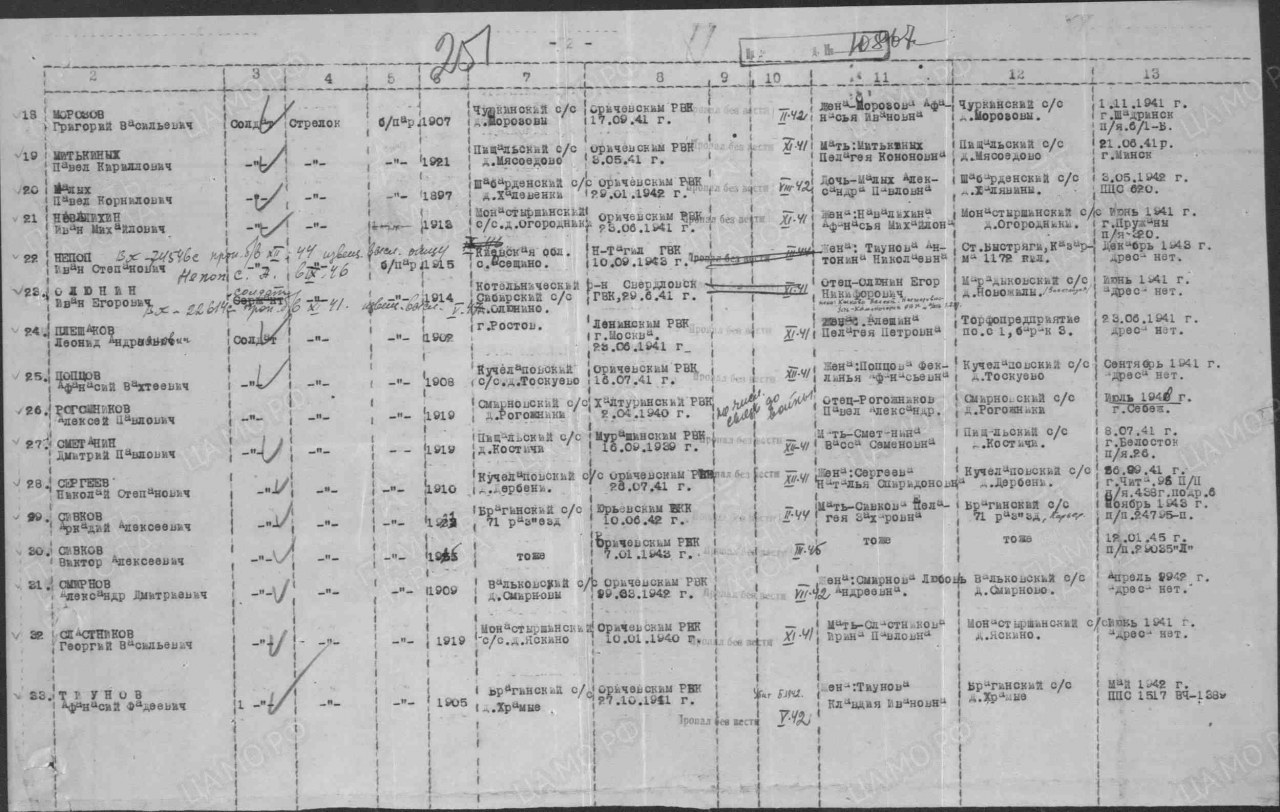 251
- 2 -
10896
2 3 4 5 6 7 8 9 10 11 12 13
18 МОРОЗОВ Григорий Васильевич Солдат Стрелок б/пар. 1907 Чуркинский с/с д.Морозовы Оричевским РВК 17.09.41 г. Пропал без вести II-42 Жена-Морозова Афанасья Ивановна Чуркинский с/с д.Морозовы. 1.11.1941 г. г.Шадринск п/я.6/1-Б.
19 МИТЬКИНЫХ Павел Кириллович -"- -"- -"- 1921 Пищальский с/с д.Мясоедово Оричевским РВК 3.05.41 г. Пропал без вести XI-41 Мать:Митькиных Пелагея Кононовна Пищальский с/с д.Мясоедово 21.06.41г. г.Минск
20 Малых Павел Корнилович -"- -"- -"- 1897 Шабарденский с/с д.Халевенки Оричевским РВК 29.01.1942 г. Пропал без вести VIII-42 Дочь-Малых Александра Павловна Шабарденский с/с д.Халявины. 3.05.1942 г. ППС 620.
21 НЕВАЛИХИН Иван Михайлович -"- -"- 1913 Монастыршинский с/с.д.Огородники Оричевским РВК 23.06.1941 г. Пропал без вести XI-41 Жена:Навалихина Афанасья Михайлона Монастыршинский с/с д.Огородники. Июнь 1941 г. г.Пружаны п/я-320.
22 НЕПОП Иван Степанович -"- -"- б/пар. 1915 Киевская обл. с.Осещино. Н-Тагил ГВК 10.09.1943 г. Пропал без вести Жена: Тиунова Антонина Николаевна Ст.Быстряги,Казарма 1172 кил. Декабрь 1943 г. адрес нет.
Вх-24546с проп. б/в XII-44 извещ. высл.
Непоп С.
23. ОЛЮНИН Иван Егорович солдат Сержант -"- -"- 1914 Котельнический р-н Сибирский с/с д.Олюнино. Свердловск ГВК,29.6.41 г. XI-41 Отец-Олюнин Егор Никифорович Марадыковский с/с д.Новожилы. Июнь 1941 г. адрес нет.
Вх-22614с проп. б/в XI-41. извещ. высл.
24. ПЛЕШАКОВ Леонид Андрианович Солдат -"- -"- 1902 г.Ростов. Ленинским РВК г.Москва, 23.06.1941 г. Пропал без вести XI-41 Алешина Пелагея Петровна Торфопредприятие по.с 1,барак 3. 23.06.1941 г. адрес нет.
25. ПОПЦОВ Афанасий Вахтеевич -"- -"- -"- 1908 Кучелаповский с/с.д.Тоскуево Оричевским РВК 16.07.41 г. Пропал без вести XII-41 Жена:Попцова Феклинья Афанасьевна Кучелаповский с/с д.Тоскуево Сентябрь 1941 г. адрес нет.
26. РОГОЖНИКОВ Алексей Павлович -"- -"- -"- 1919 Смирновский с/с д.Рогожники Халтуринский РВК 2.04.1940 г. до войны Отец-Рогожников Павел Александр. Смирновский с/с д.Рогожники Июль 194 г. г.Себеж.
27. СМЕТАНИН Дмитрий Павлович -"- -"- -"- 1919 Пищальский с/с д.Костичи Мурашинским РВК 16.09.1939 г. Пропал без вести XII-41 Мать-Сметанина Васса Семеновна Пищальский с/с д.Костичи. 8.07.41 г. г.Белосток п/я.26.
28. СЕРГЕЕВ Николай Степанович -"- -"- -"- 1910 Кучелаповский с/с д.Дербени. Оричевским РВК 28.07.41 г. Пропал без вести XII-41 Жена:Сергеева Наталья Спиридоновна Кучелаповский с/с д.Дербени. 26.09.41 г. г.Чита.95 П/П п/я.438г.подр.6
29. СИВКОВ Аркадий Алексеевич -"- -"- -"- Брагинский с/с 71 раз"езд Юрьевским РВК 10.06.42 г. Пропал без вести II-44 Мать-Сивкова Пелагея Захаровна Брагинский с/с 71 раз"зд, Ноябрь 1943 г. п/п.24795-п.
30. СИВКОВ Виктор Алексеевич -"- -"- -"- тоже Оричевским РВК 7.01.1943 г. Пропал без вести III-45 тоже тоже 12.01.45 г. п/п.29035"Л"
31. СМИРНОВ Александр Дмитриевич -"- -"- -"- 1909 Вальковский с/с д.Смирновы Оричевским РВК 1942 г. Пропал без вести VII-42 Жена:Смирнова Любовь Андреевна. Вальковский с/с д.Смирново. Апрель 9942 г. адрес нет.
32 СЛАСТНИКОВ Георгий Васильевич -"- -"- -"- 1919 Монастыршинский с/с.д.Яскино Оричевским РВК 10.01.1940 г. Пропал без вести XI-41 Мать-Сластникова Ирина Павловна Монастыршинский с/с д.Яскино. Июнь 1941 г. адрес нет.
33. ТИУНОВ Афанасий Фадеевич 1 -"- -"- -"- 1905 Брагинский с/с д.Храмые Оричевским РВК 27.10.1941 г. Пропал без вести V-42 Жена:Тиунова Клавдия Ивановна Брагинский с/с д.Храмые Май 1942 г. ППС 1517 ВЧ-138
ЦАМО.РФ